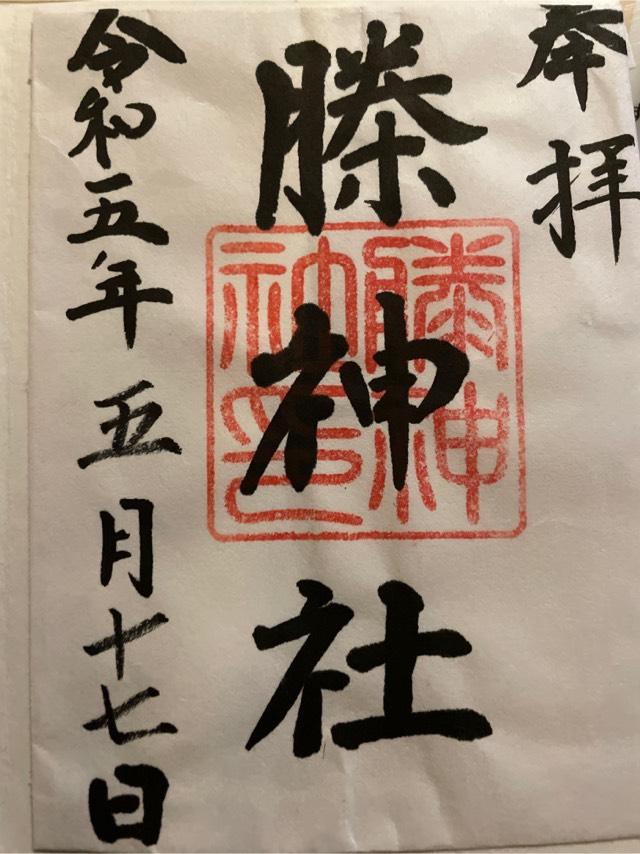 奉拝
榺神社
榺神
社印
令和五年五月十七日